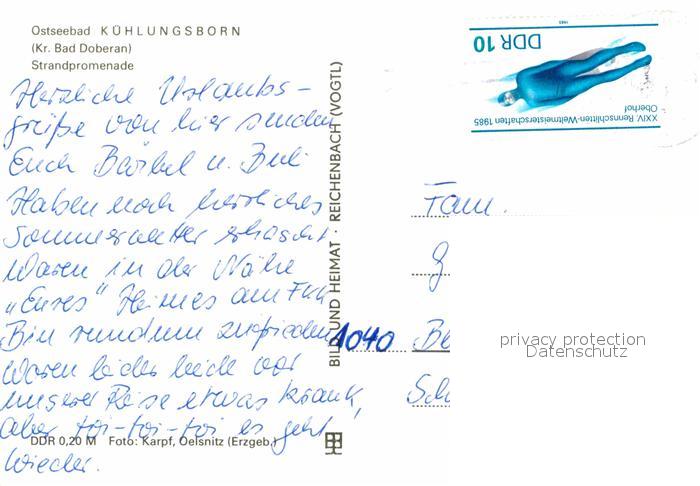 Ostseebad KÜHLUNGSBORN
(Kr. Bad Doberan)
Strandpromenade
Herzliche Urlaubs-
grüße von hier senden
Euch Bärbel u.
Haben noch herrliches
Sommerwetter erhascht.
Waren in der Nähe
„Eures" Heimes am FKK
Bin rundum zufrieden
Waren leider beide vor
unserer Reise etwas krank,
aber toi-toi-toi es geht
wieder.
DDR 0,20 M Foto: Karpf, Oelsnitz (Erzgeb.)
BILD UND HEIMAT · REICHENBACH (VOGTL)
DDR 10
1985
XXIV. Rennschlitten-Weltmeisterschaften 1985
Oberhof
Fam.
G
1040 Be
Sch
privacy protection
Datenschutz